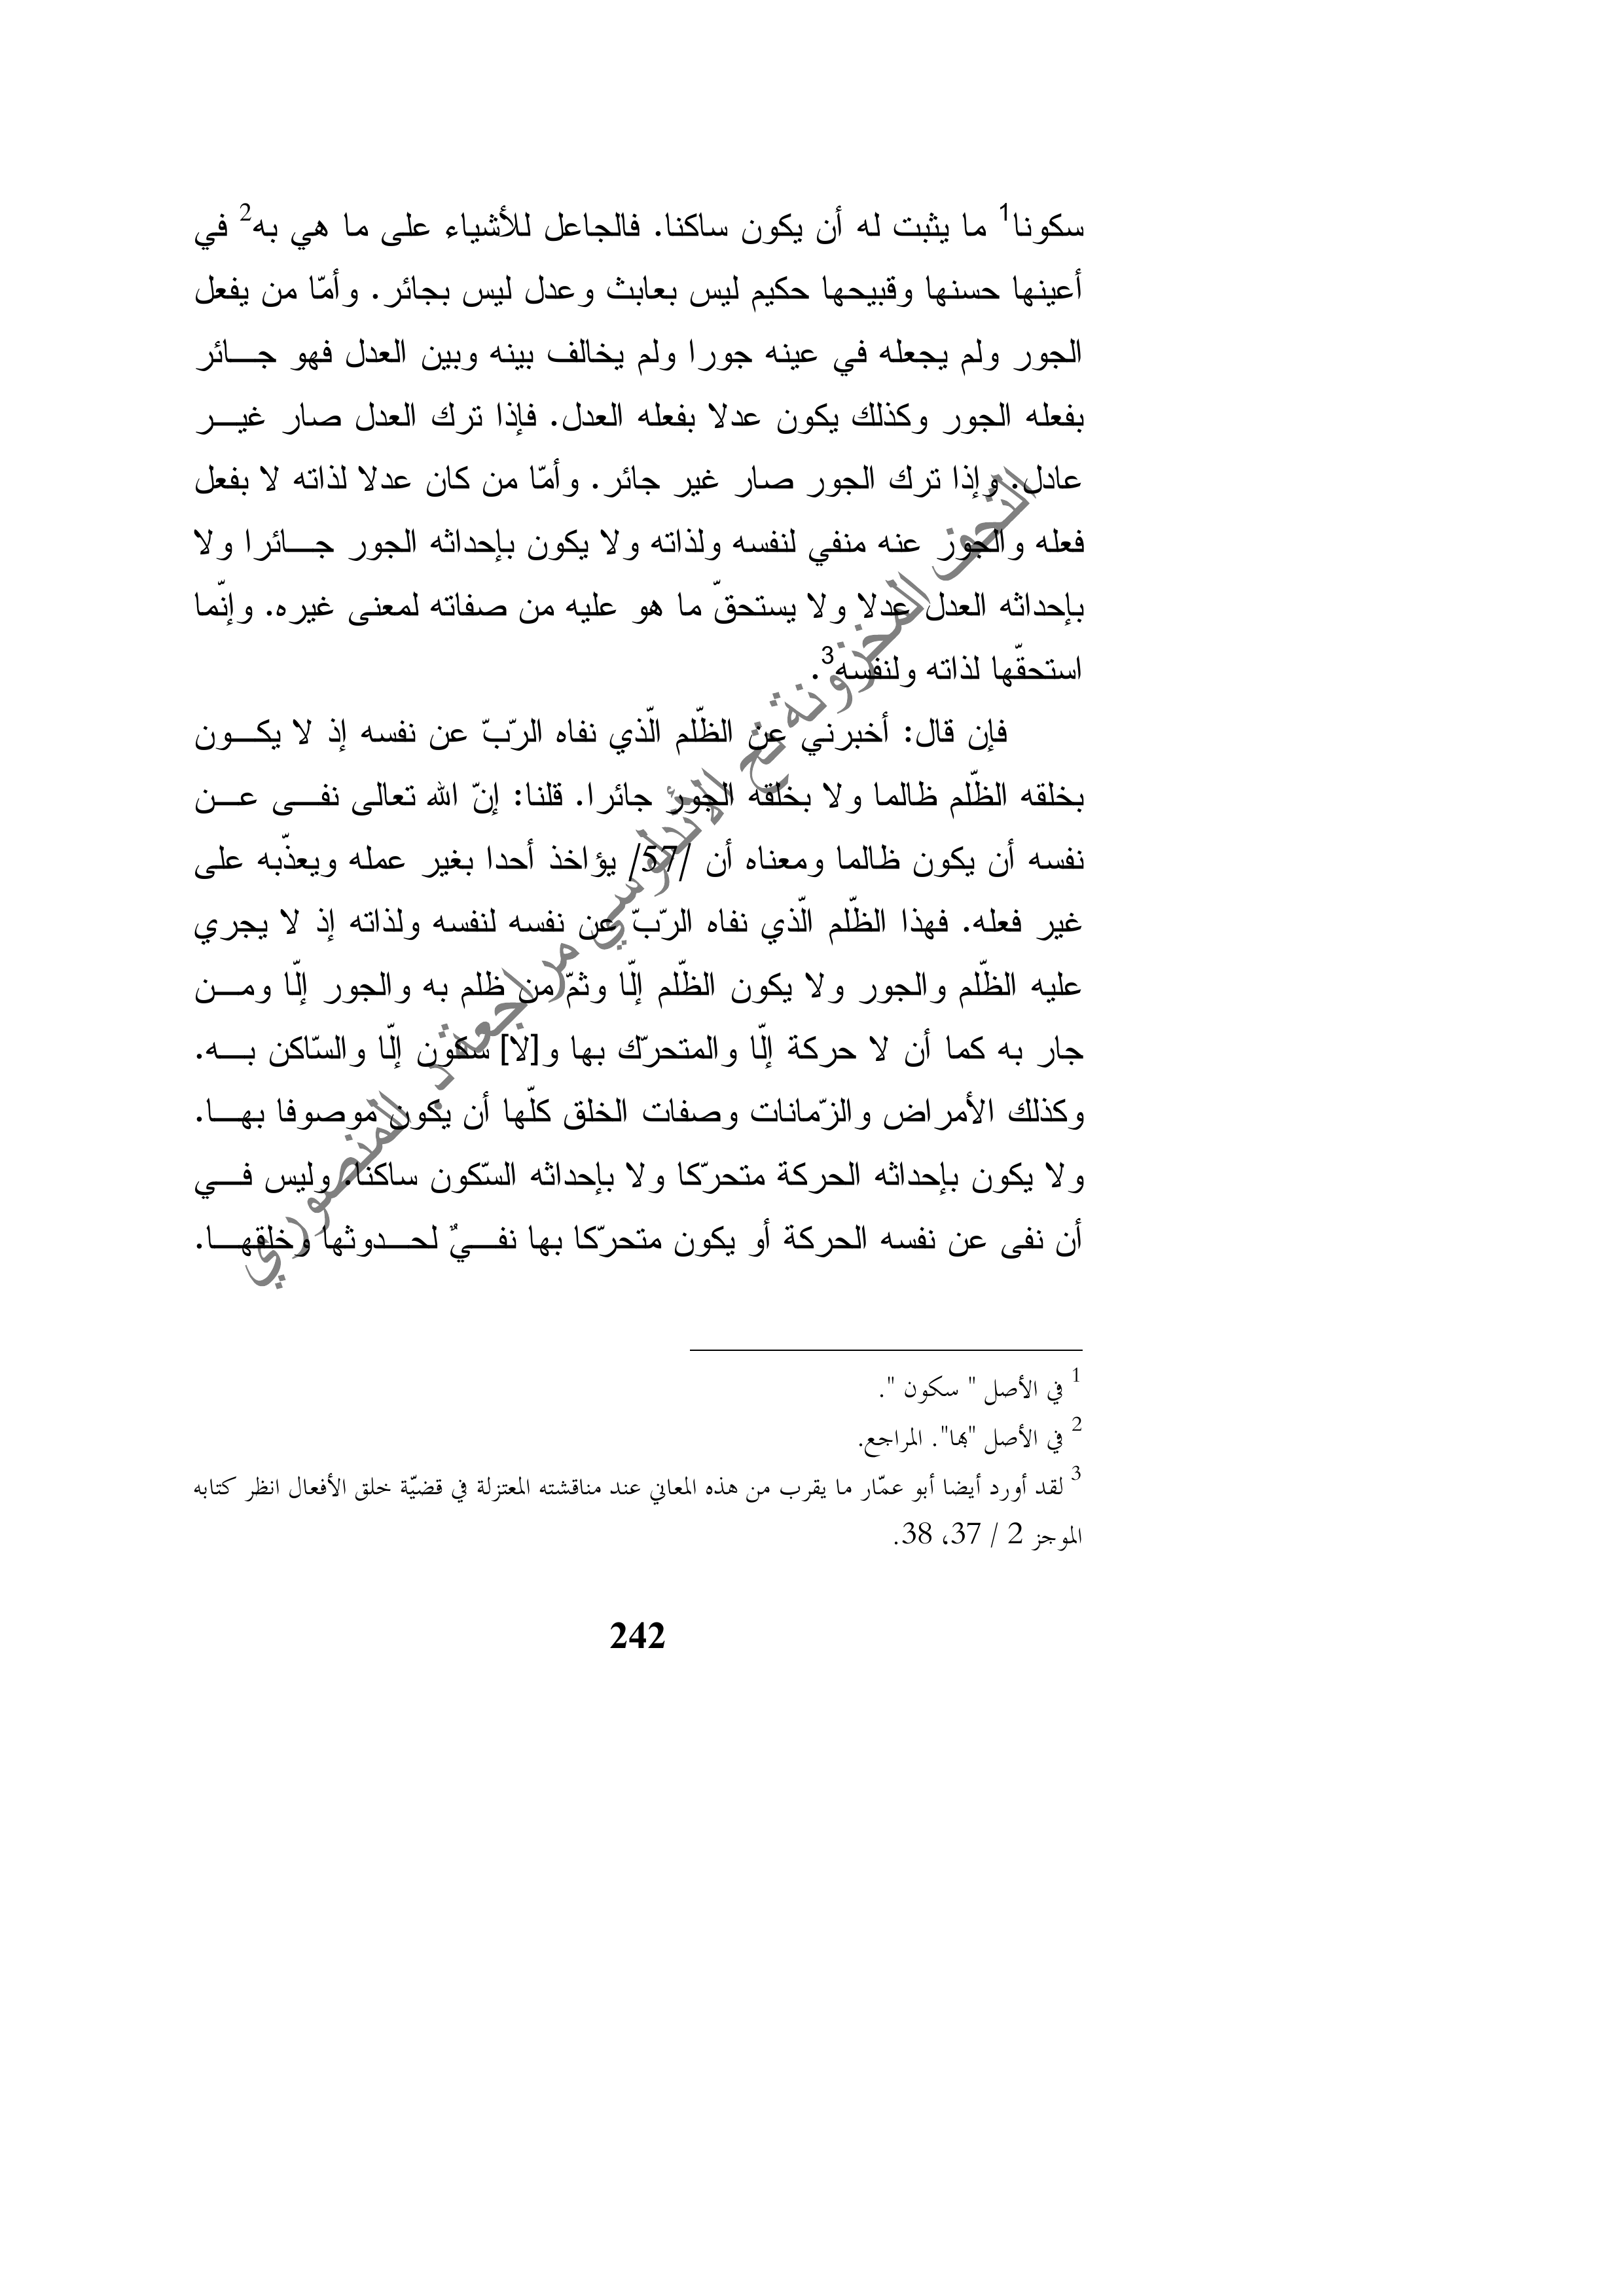 سكونا1 ما يثبت له أن يكون ساكنا. فالجاعل للأشياء على ما هي به2 في
أعينها حسنها وقبيحها حكيم ليس بعابث وعدل ليس بجائر. وأمّا من يفعل
الجور ولم يجعله في عينه جورا ولم يخالف بينه وبين العدل فهو جـــائر
بفعله الجور وكذلك يكون عدلا بفعله العدل. فإذا ترك العدل صار غيـــر
عادل. وإذا ترك الجور صار غير جائر. وأمّا من كان عدلا لذاته لا بفعل
فعله والجور عنه منفي لنفسه ولذاته ولا يكون بإحداثه الجور جـــائرا ولا
بإحداثه العدل عدلا ولا يستحقّ ما هو عليه من صفاته لمعنى غيره. وإنّما
استحقّها لذاته ولنفسه3.
فإن قال: أخبرني عن الظّلم الّذي نفاه الربّ عن نفسه إذ لا يكـــون
بخلقه الظّلم ظالما ولا بخلقه الجور جائرا. قلنا: إنّ الله تعالى نفـــى عـــن
نفسه أن يكون ظالما ومعناه أن /57/ يؤاخذ أحدا بغير عمله ويعذّبه على
غير فعله. فهذا الظّلم الّذي نفاه الربّ عن نفسه لنفسه ولذاته إذ لا يجري
عليه الظّلم والجور ولا يكون الظّلم إلّا وثمّ من ظلم به والجور إلّا ومـــن
جار به كما أن لا حركة إلّا والمتحرّك بها و[لا] سكون إلّا والسّاكن بـــه.
وكذلك الأمراض والزّمانات وصفات الخلق كلّها أن يكون موصوفا بهـــا.
ولا يكون بإحداثه الحركة متحرّكا ولا بإحداثه السّكون ساكنا. وليس فـــي
أن نفى عن نفسه الحركة أو يكون متحرّكا بها نفـــيٌ لحـــدوثها وخلقهـــا.
1 في الأصل " سكون ".
2 في الأصل "بها". المراجع.
3 لقد أورد أيضا أبو عمّار ما يقرب من هذه المعاني عند مناقشته المعتزلة في قضيّة خلق الأفعال انظر كتابه
الموجز 2 / 37، 38.
242